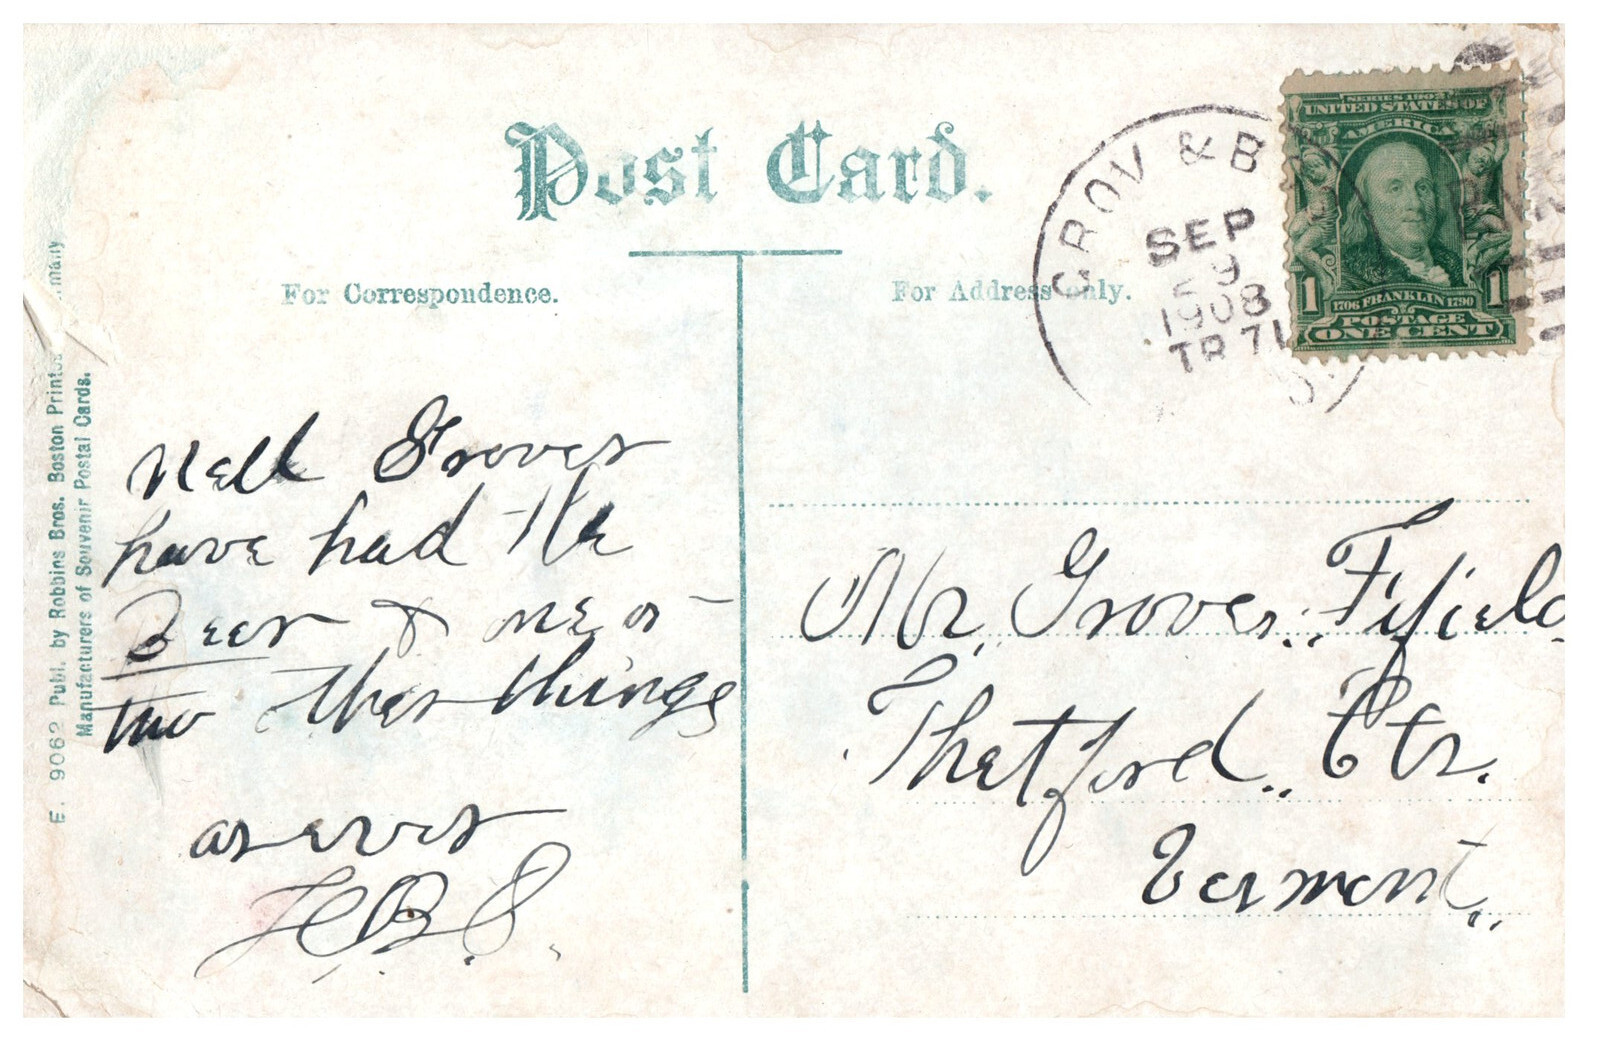 Post Card.
For Correspondence.
For Address only.
GROV & B
SEP
29
1908
TR 71
SERIES 1902
UNITED STATES OF
AMERICA
1706 FRANKLIN 1790
1 1
POSTAGE
ONE CENT
Nell Grover
have had the
Beer & one or
two other things
as ever
H.B.S.
Mr. Grover Fifield
Thetford Ctr.
Vermont
E. 9062 Publ. by Robbins Bros. Boston
Manufacturers of Souvenir Postal Cards.